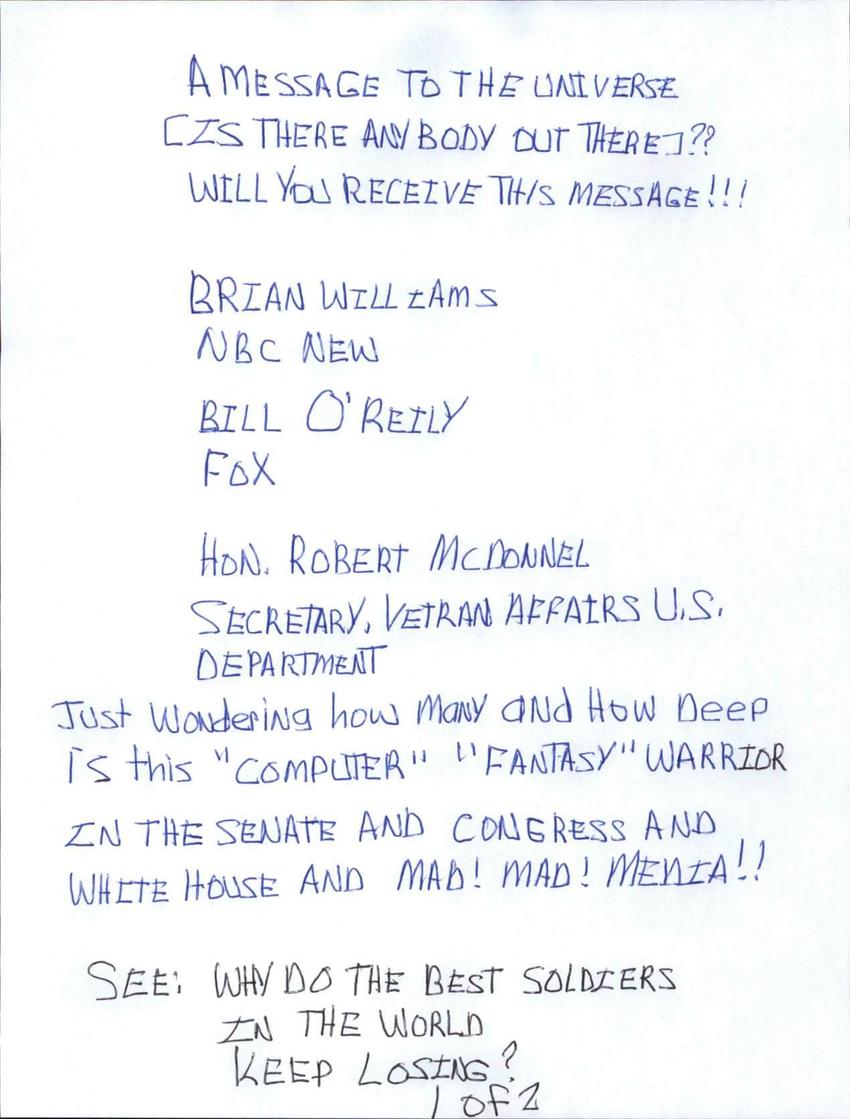 A MESSAGE TO THE UNIVERSE
[IS THERE ANY BODY OUT THERE]??
WILL YOU RECEIVE THIS MESSAGE!!!
BRIAN WILLIAMS
NBC NEW
BILL O'REILY
FOX
HON. ROBERT MCDONNEL
SECRETARY, VETRAN AFFAIRS U.S.
DEPARTMENT
Just Wondering how Many and How Deep
is this "COMPUTER" "FANTASY" WARRIOR
IN THE SENATE AND CONGRESS AND
WHITE HOUSE AND MAD! MAD! MEDIA!!
SEE: WHY DO THE BEST SOLDIERS
IN THE WORLD
KEEP LOSING?
1 OF 2